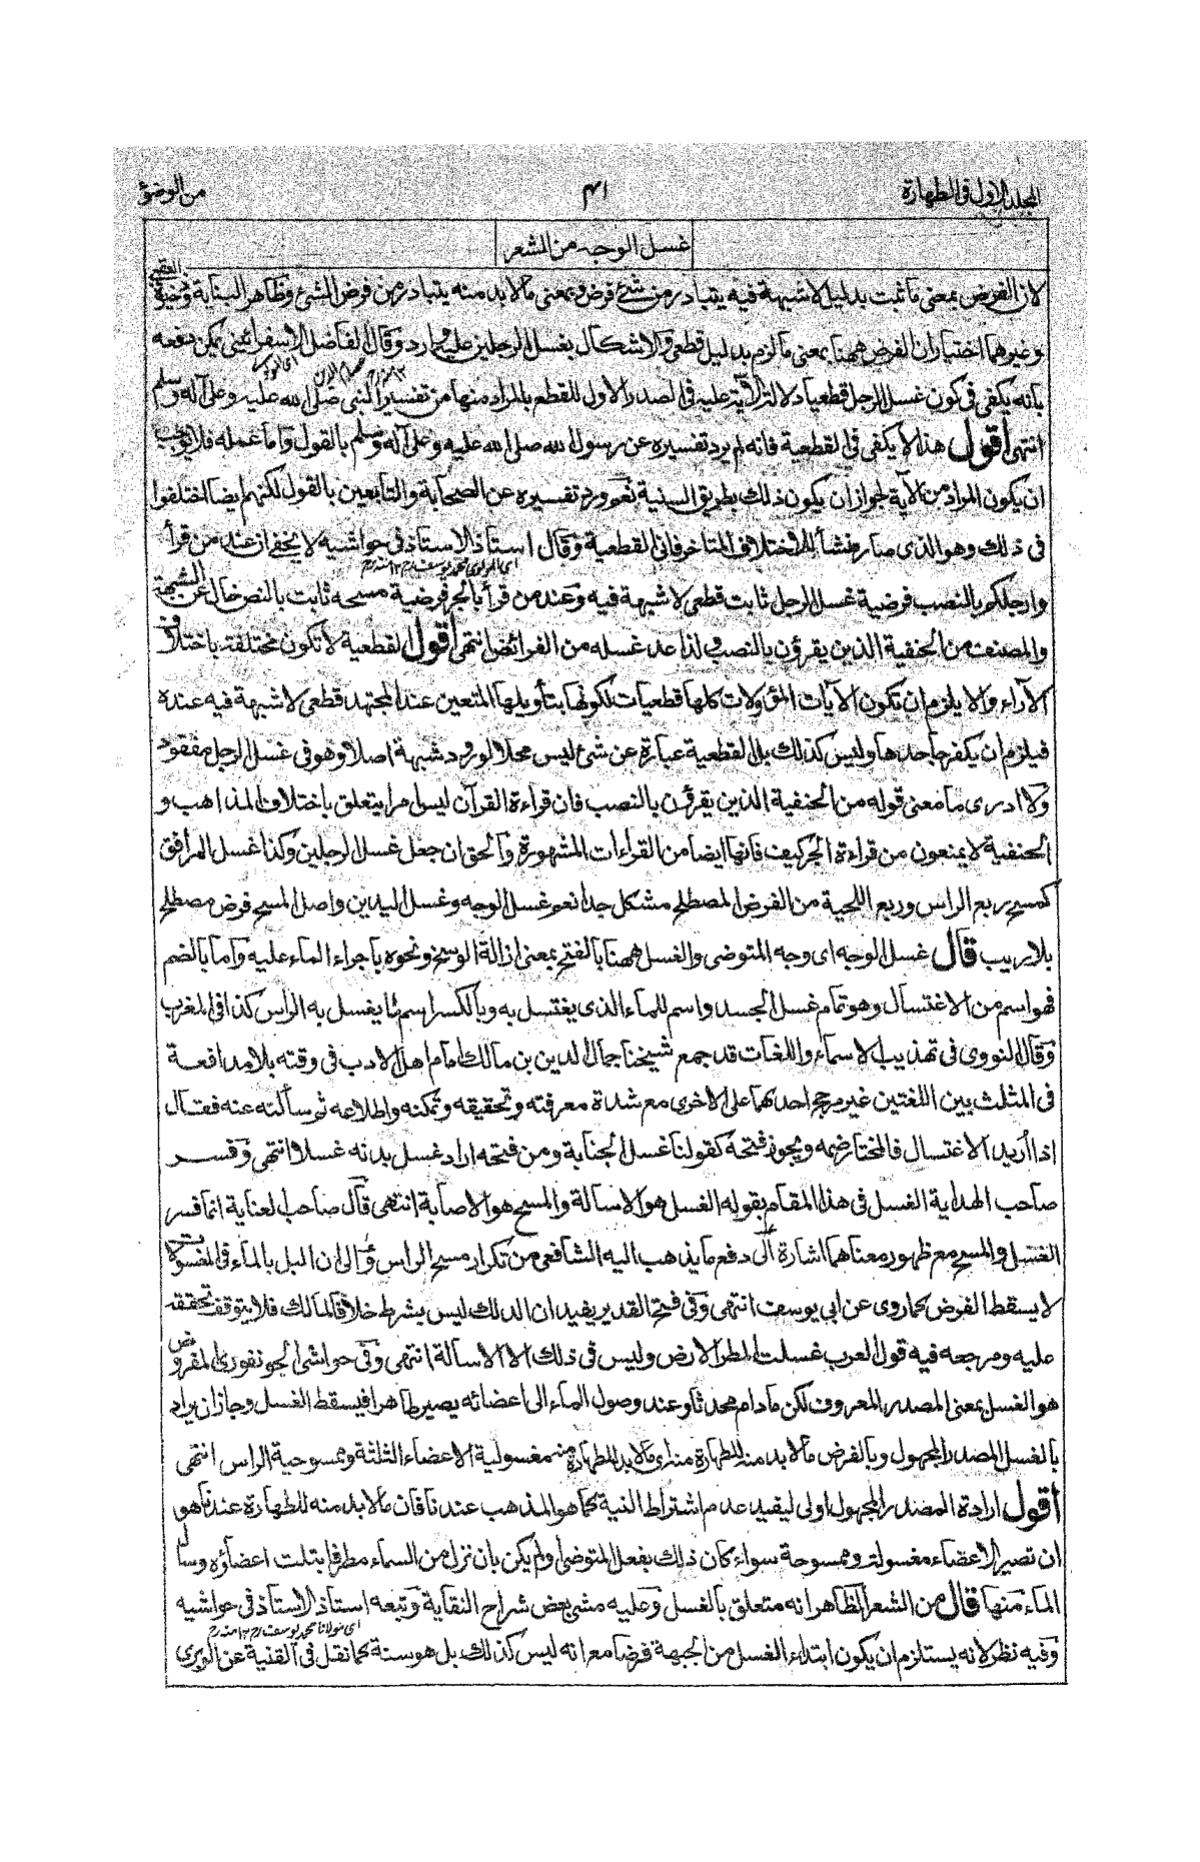 المجلد الاول فى الطهارة
٤١
من الوضوء
غسل الوجه من الشعر
لان الفرض بمعنى ما ثبت بدليل لا شبهة فيه يتبادر من شئ فرض وبمعنى ما لا بد منه يتبادر من فرض الشئ وظاهر البناية وذخيرة العقبى
وغيرهما اختيار ان الفرض ههنا بمعنى ما لزم بدليل قطعى والاشكال بغسل الرجلين عليه وارد وقال الفاضل الاسفرائنى يمكن دفعه
بانه يكفى فى كون غسل الرجل قطعيا دلالة الآية عليه فى الصدر الاول للقطع بالمراد منها من تفسير النبى صلى الله عليه وعلى آله وسلم
انتهى اقول هذا لا يكفى فى القطعية فانه لم يرد تفسيره عن رسول الله صلى الله عليه وعلى آله وسلم بالقول واما عمله فلا يوجب
ان يكون المراد من الآية لجواز ان يكون ذلك بطريق السنية نعم ورد تفسيره عن الصحابة والتابعين بالقول لكنهم ايضا اختلفوا
فى ذلك وهو الذى صار منشأ للاختلاف المتاخر فانى القطعية وقال استاذ الاستاذ فى حواشيه لا يخفى ان عند من قرأ
اى المولوى محمد يوسف رح ١٢ منه رح
وارجلكم بالنصب فرضية غسل الرجل ثابت قطعى لا شبهة فيه وعند من قرأ بالجر فرضية مسحه ثابت بالنص خال عن الشبهة
والمصنف من الحنفية الذين يقرؤن بالنصب فلذا عد غسله من الفرائض انتهى اقول القطعية لا تكون مختلفة باختلاف
الآراء والا يلزم ان تكون الآيات المؤولات كلها قطعيات لكونها بتأويلها المتعين عند المجتهد قطعى لا شبهة فيه عنده
فيلزم ان يكفر جاحدها وليس كذلك بل القطعية عبارة عن شئ ليس محلا لورود شبهة اصلا وهو فى غسل الرجل مفقود
ولا ادرى ما معنى قوله من الحنفية الذين يقرؤن بالنصب فان قراءة القرآن ليس امرا يتعلق باختلاف المذاهب و
الحنفية لا يمنعون من قراءة الجر كيف فانها ايضا من القراءات المشهورة والحق ان جعل غسل الرجلين وكذا غسل المرافق
كمسح ربع الراس وربع اللحية من الفرض المصطلح مشكل جدا نعم غسل الوجه وغسل اليدين واصل المسح فرض مصطلح
بلا ريب قال غسل الوجه اى وجه المتوضى والغسل ههنا بالفتح بمعنى ازالة الوسخ ونحوه باجراء الماء عليه واما بالضم
فهو اسم من الاغتسال وهو تمام غسل الجسد واسم للماء الذى يغتسل به وبالكسر اسم لما يغسل به الراس كذا فى المغرب
وقال النووى فى تهذيب الاسماء واللغات قد جمع شيخنا جمال الدين بن مالك امام اهل الادب فى وقته بلا مدافعة
فى المثلث بين اللغتين غير مرجح احدهما على الاخرى مع شدة معرفته وتحقيقه وتمكنه واطلاعه ثم سألته عنه فقال
اذا اريد الاغتسال فالمختار ضمه ويجوز فتحه كقولنا غسل الجنابة ومن فتحه اراد غسل بدنه غسلا انتهى وفسر
صاحب الهداية الغسل فى هذا المقام بقوله الغسل هو الاسالة والمسح هو الاصابة انتهى قال صاحب العناية انما فسر
الغسل والمسح مع ظهور معناهما اشارة الى دفع ما يذهب اليه الشافعى من تكرار مسح الراس والى ان البل بالماء فى المغسولات
لا يسقط الفرض كما روى عن ابى يوسف انتهى وفى فتح القدير يفيد ان الدلك ليس بشرط خلافا لمالك فلا يتوقف تحققه
عليه ومرجعه فيه قول العرب غسلت المطر الارض وليس فى ذلك الا الاسالة انتهى وفى حواشى الجونفورى المفروض
هو الغسل بمعنى المصدر المعروف لكن ما دام محدثا وعند وصول الماء الى اعضائه يصير طاهرا فيسقط الغسل وجاز ان يراد
بالغسل المصدر المجهول وبالفرض ما لا بد منه للطهارة اى ما لا بد للطهارة منه مغسولية الاعضاء الثلثة وممسوحية الراس انتهى
اقول ارادة المصدر المجهول اولى ليفيد عدم اشتراط النية كما هو المذهب عندنا فان ما لا بد منه للطهارة عندنا هو
ان تصير الاعضاء مغسولة وممسوحة سواء كان ذلك بفعل المتوضى او لم يكن بان نزل من السماء مطر فابتلت اعضاؤه وسال
الماء منها قال من الشعر الظاهر انه متعلق بالغسل وعليه مشى بعض شراح النقاية وتبعه استاذ الاستاذ فى حواشيه
اى مولانا محمد يوسف رح ١٢ منه رح
وفيه نظر لانه يستلزم ان يكون ابتداء الغسل من الجبهة فرضا مع انه ليس كذلك بل هو سنة كما نقل فى القنية عن الوبرى